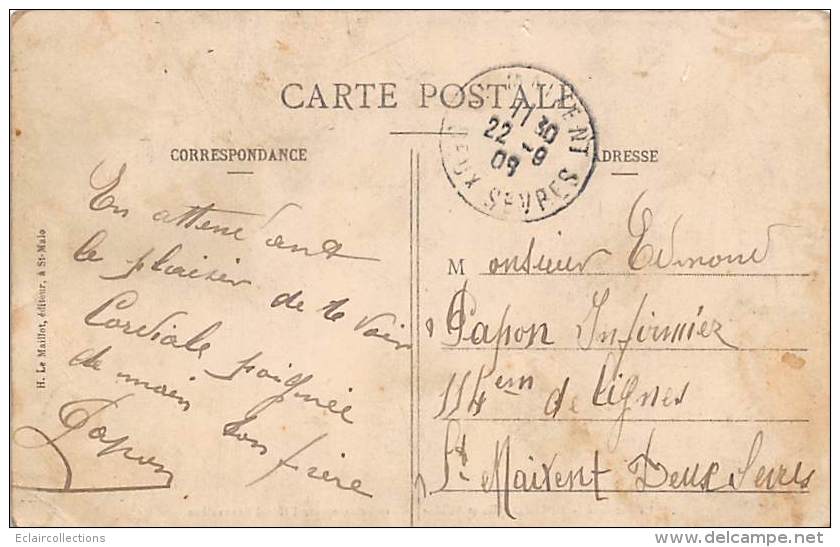 CARTE POSTALE
CORRESPONDANCE
ADRESSE
MAIXENT
11 30
22 -9
09
DEUX SEVRES
H. Le Maillot, éditeur, à St-Malo
En attendant
le plaisir de te voir
Cordiale poignée
de main ton frère
Papon
Monsieur Edmond
Papon Infirmier
114em de lignes
St Maixent Deux Sevres
Eclaircollections
www.delcampe.net